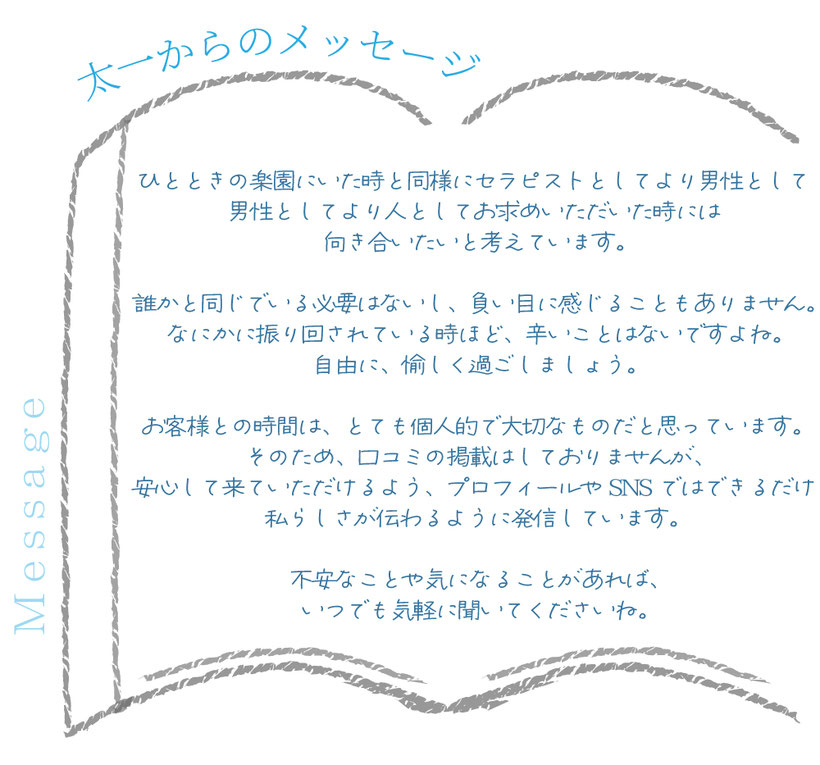 太一からのメッセージ
ひとときの楽園にいた時と同様にセラピストとしてより男性として
男性としてより人としてお求めいただいた時には
向き合いたいと考えています。
誰かと同じでいる必要はないし、負い目に感じることもありません。
なにかに振り回されている時ほど、辛いことはないですよね。
自由に、愉しく過ごしましょう。
お客様との時間は、とても個人的で大切なものだと思っています。
そのため、口コミの掲載はしておりませんが、
安心して来ていただけるよう、プロフィールやSNSではできるだけ
私らしさが伝わるように発信しています。
不安なことや気になることがあれば、
いつでも気軽に聞いてくださいね。
Message